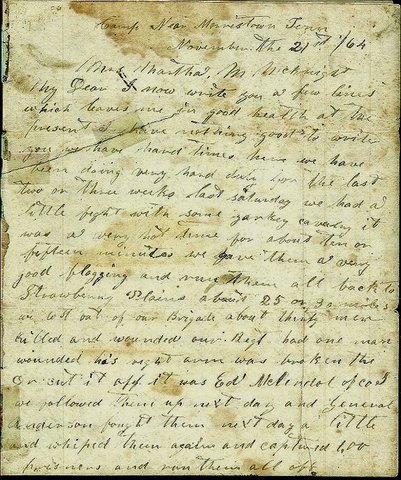 Camp Near Morristown Tenn
November the 21st /64
Mrs Martha M McKnight
My Dear I now write you a few lines
which leaves me in good health at the
present I have nothing good to write
you we have hard times here we have
been doing very hard duty for the last
two or three weeks last saturday we had a
little fight with some yankey cavalry it
was a very hot time for about ten or
fifteen minutes we gave them a very
good flogging and run them all back to
Strawberry Plains about 25 or 30 miles
we lost out of our Brigade about thirty men
killed and wounded our Regt had one man
wounded his right arm was broken the
Dr cut it off it was Ed of co
we followed them up next day and General
fought them next day a little
and whiped them again and captured 600
prisoners and run them all off